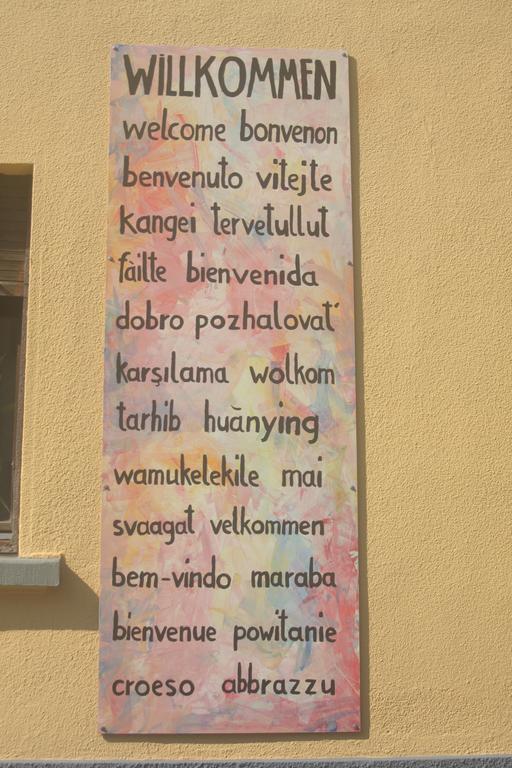 WILLKOMMEN
welcome bonvenon
benvenuto vitejte
kangei tervetullut
fàilte bienvenida
dobro pozhalovat'
karşılama wolkom
tarhib huānying
wamukelekile mai
svaagat velkommen
bem-vindo maraba
bienvenue powitanie
croeso abbrazzu